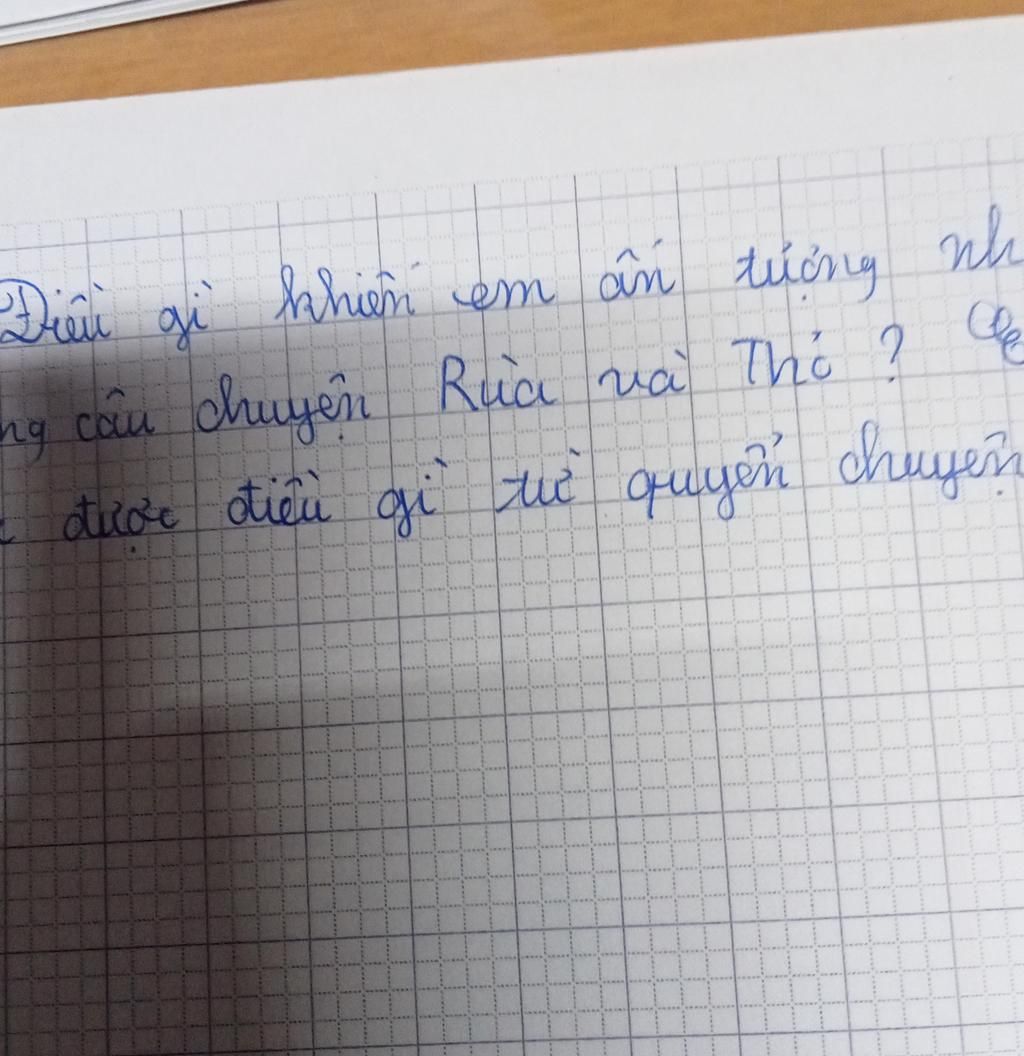 Điều gì khiến em ấn tượng nh
ng câu chuyện Rùa và Thỏ ?
được điều gì từ quyển chuyện